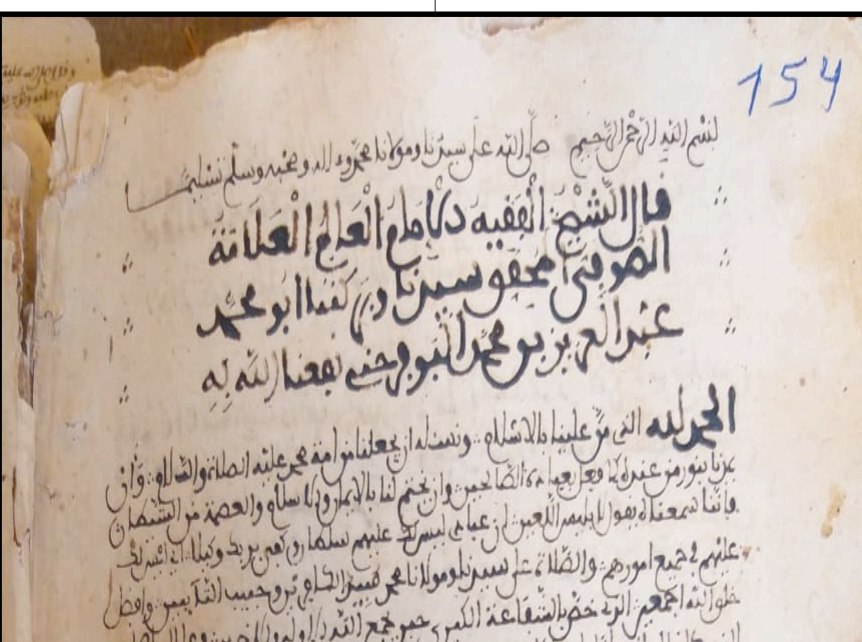 154
بسم الله الرحمن الرحيم صلى الله على سيدنا ومولانا محمد وءاله وصحبه وسلم تسليما
قال الشيخ الفقيه الامام العالم العلامة
الصوفي المحقق سيدنا وبركتنا ابو محمد
عبد العزيز بن محمد نفعنا الله به
الحمد لله الذي من علينا بالاسلام ونسئله ان يجعلنا من امة محمد عليه الصلاة والسلام وان
بنور من عنده كما فعل بعباده الصالحين وان يختم لنا بالايمان والاسلام والعصمة من الشيطان
فإننا سمعناه يقول لإبليس اللعين ان عبادي ليس لك عليهم سلطان وكفى بربك وكيلا
عليهم في جميع امورهم والصلاة على سيدنا ومولانا محمد وحبيب وافضل
خلق الله اجمعين الذي خص بالشفاعة الكبرى حين يجمع الله